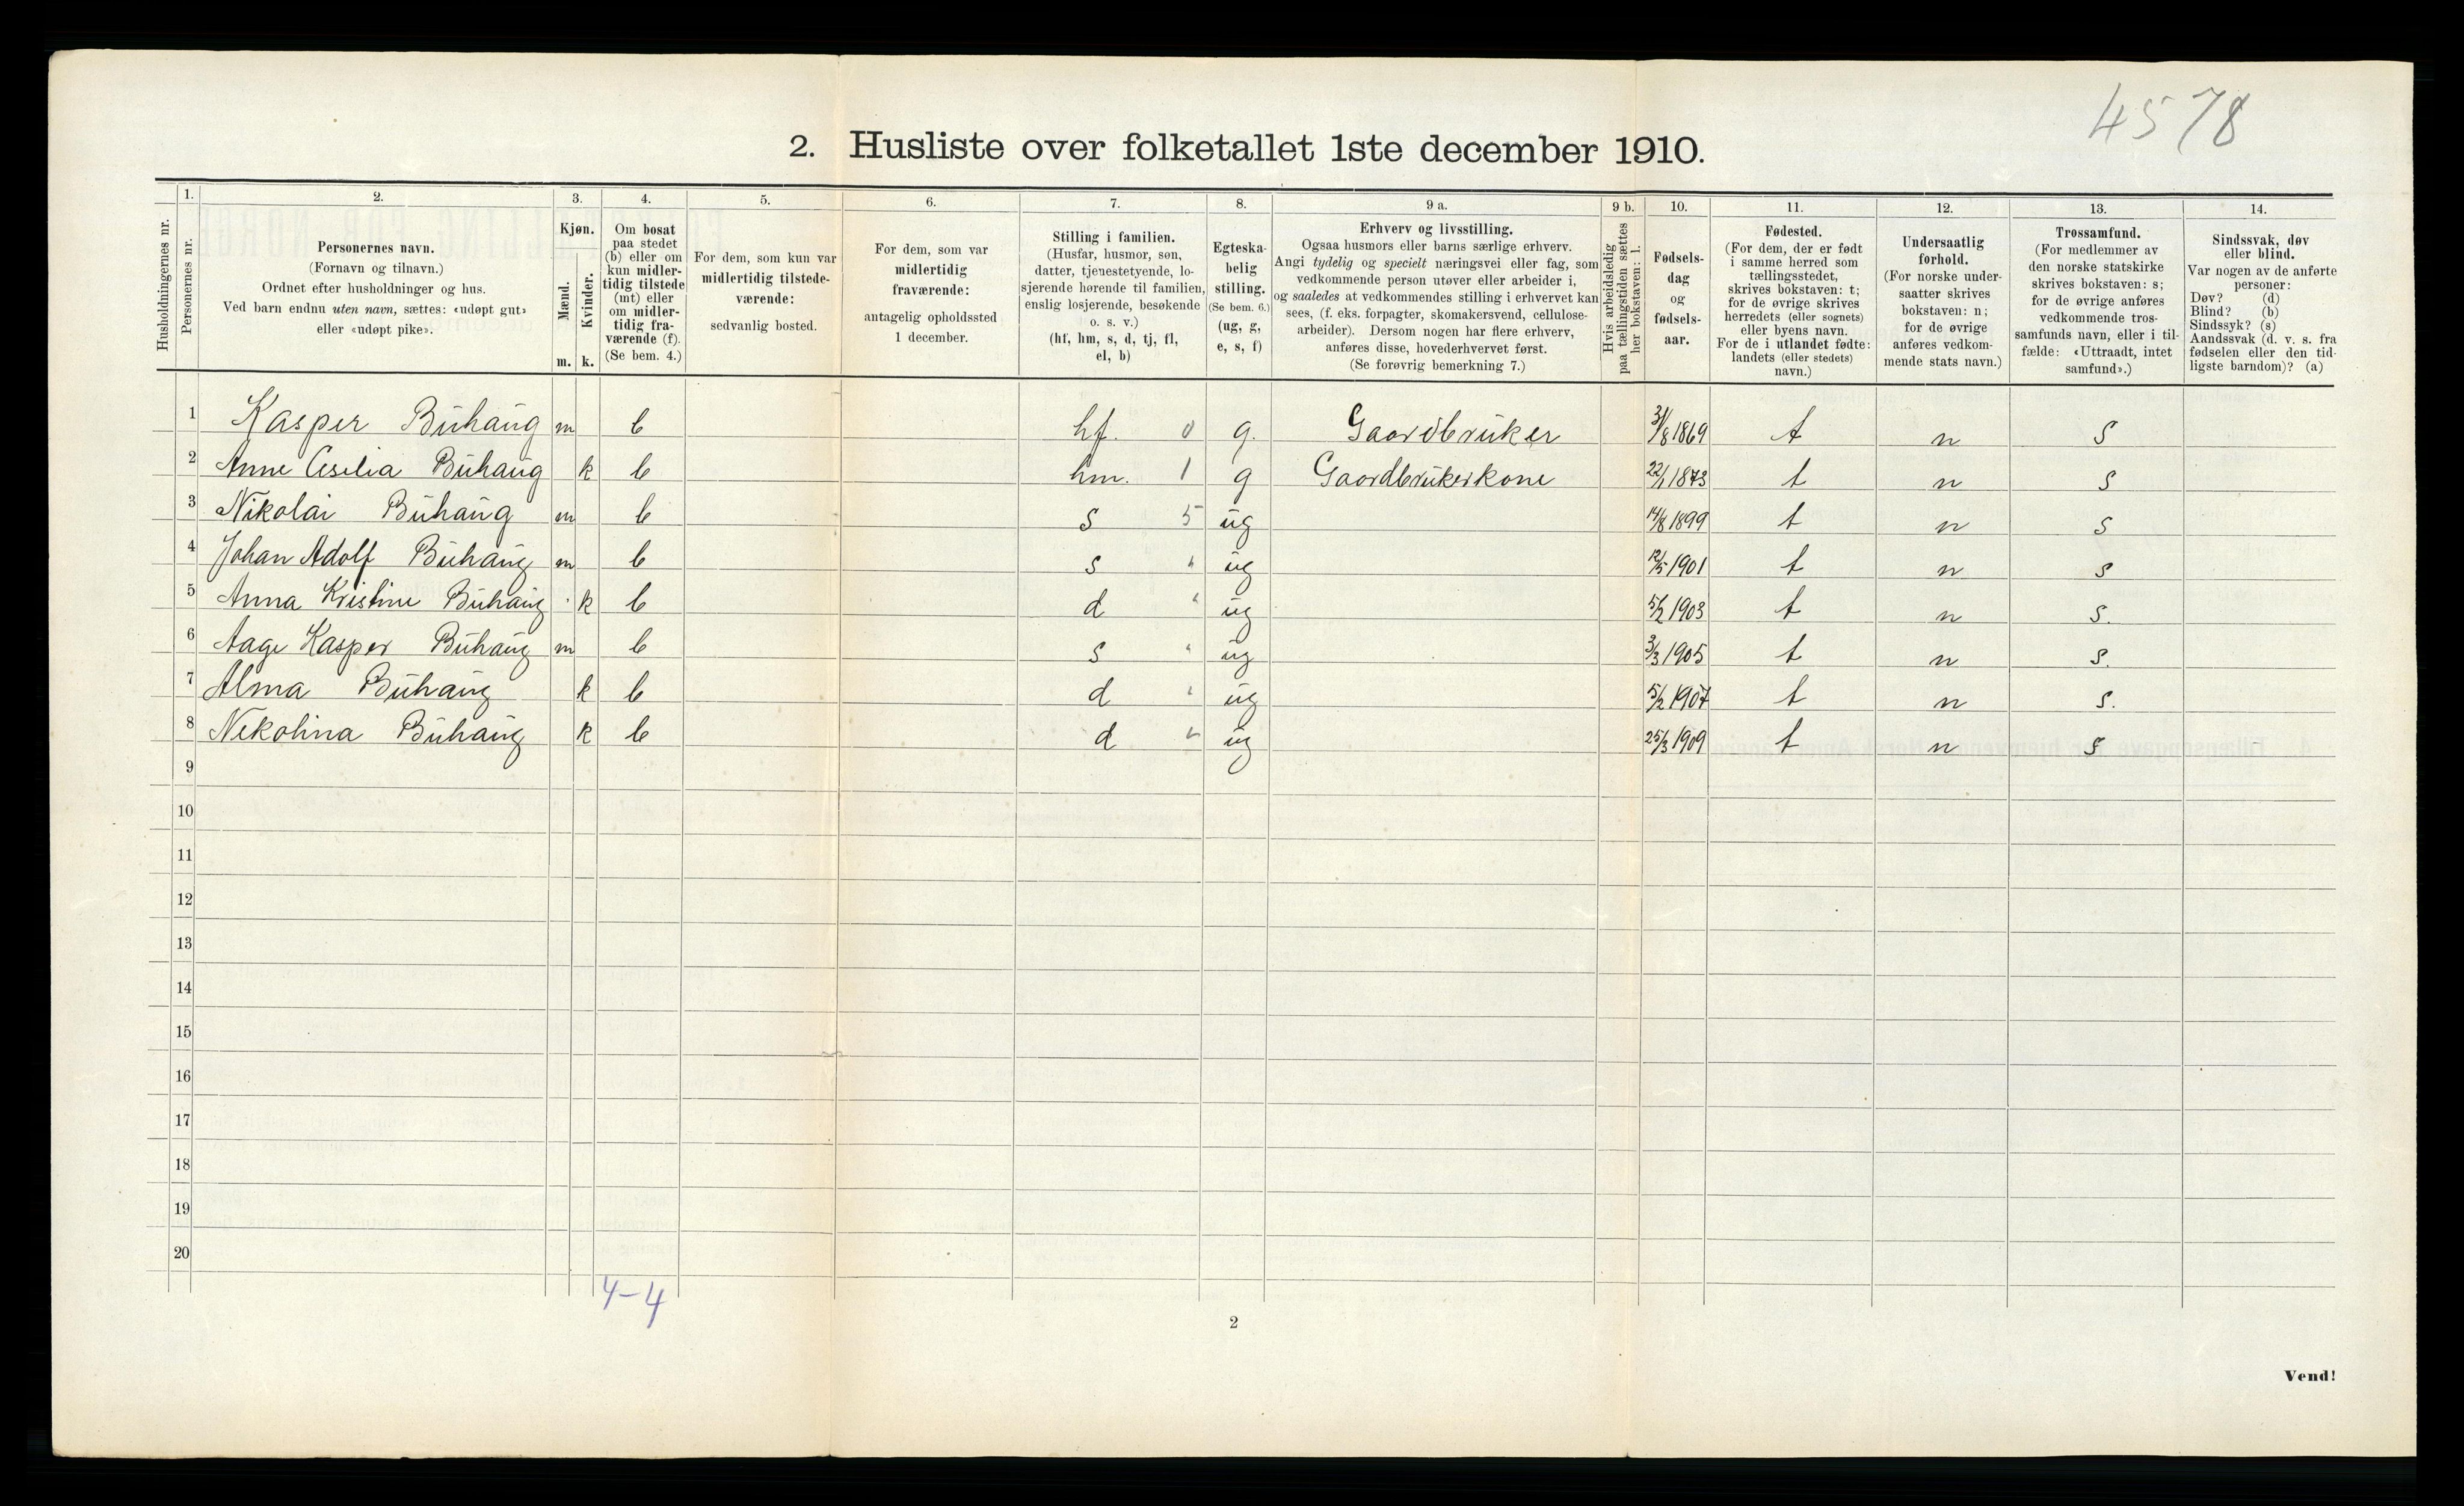 4578
2. Husliste over folketallet 1ste december 1910.
1. 2. 3. 4. 5. 6. 7. 8. 9 a. 9 b. 10. 11. 12. 13. 14.
Husholdningernes nr.
Personernes nr.
Personernes navn.
(Fornavn og tilnavn.)
Ordnet efter husholdninger og hus.
Ved barn endnu uten navn, sættes: «udøpt gut»
eller «udøpt pike».
Kjøn.
Mænd.
Kvinder.
m. k.
Om bosat
paa stedet
(b) eller om
kun midler-
tidig tilstede
(mt) eller
om midler-
tidig fra-
værende (f).
(Se bem. 4.)
For dem, som kun var
midlertidig tilstede-
værende:
sedvanlig bosted.
For dem, som var
midlertidig
fraværende:
antagelig opholdssted
1 december.
Stilling i familien.
(Husfar, husmor, søn,
datter, tjenestetyende, lo-
sjerende hørende til familien,
enslig losjerende, besøkende
o. s. v.)
(hf, hm, s, d, tj, fl,
el, b)
Egteska-
belig
stilling.
(Se bem. 6.)
(ug, g,
e, s, f)
Erhverv og livsstilling.
Ogsaa husmors eller barns særlige erhverv.
Angi tydelig og specielt næringsvei eller fag, som
vedkommende person utøver eller arbeider i,
og saaledes at vedkommendes stilling i erhvervet kan
sees, (f. eks. forpagter, skomakersvend, cellulose-
arbeider). Dersom nogen har flere erhverv,
anføres disse, hovederhvervet først.
(Se forøvrig bemerkning 7.)
Hvis arbeidsledig
paa tællingstiden sættes
her bokstaven: l.
Fødsels-
dag
og
fødsels-
aar.
Fødested.
(For dem, der er født
i samme herred som
tællingsstedet,
skrives bokstaven: t;
for de øvrige skrives
herredets (eller sognets)
eller byens navn.
For de i utlandet fødte:
landets (eller stedets)
navn.)
Undersaatlig
forhold.
(For norske under-
saatter skrives
bokstaven: n;
for de øvrige
anføres vedkom-
mende stats navn.)
Trossamfund.
(For medlemmer av
den norske statskirke
skrives bokstaven: s;
for de øvrige anføres
vedkommende tros-
samfunds navn, eller i til-
fælde: «Uttraadt, intet
samfund».)
Sindssvak, døv
eller blind.
Var nogen av de anførte
personer:
Døv? (d)
Blind? (b)
Sindssyk? (s)
Aandssvak (d. v. s. fra
fødselen eller den tid-
ligste barndom)? (a)
1 Kasper Buhaug m b hf. 0 g. Gaardbruker 31/8 1869 t n s
2 Anne Cesilia Buhaug k b hm. 1 g Gaardbrukerkone 22/1 1873 t n s
3 Nikolai Buhaug m b s 5 ug 14/8 1899 t n s
4 Johan Adolf Buhaug m b s " ug 12/5 1901 t n s
5 Anna Kristine Buhaug k b d " ug 5/2 1903 t n s.
6 Aage Kasper Buhaug m b s " ug 3/3 1905 t n s.
7 Alma Buhaug k b d " ug 5/2 1907 t n s.
8 Nekolina Buhaug k b d " ug 25/3 1909 t n s
9
10
11
12
13
14
15
16
17
18
19
20
4-4
2
Vend!